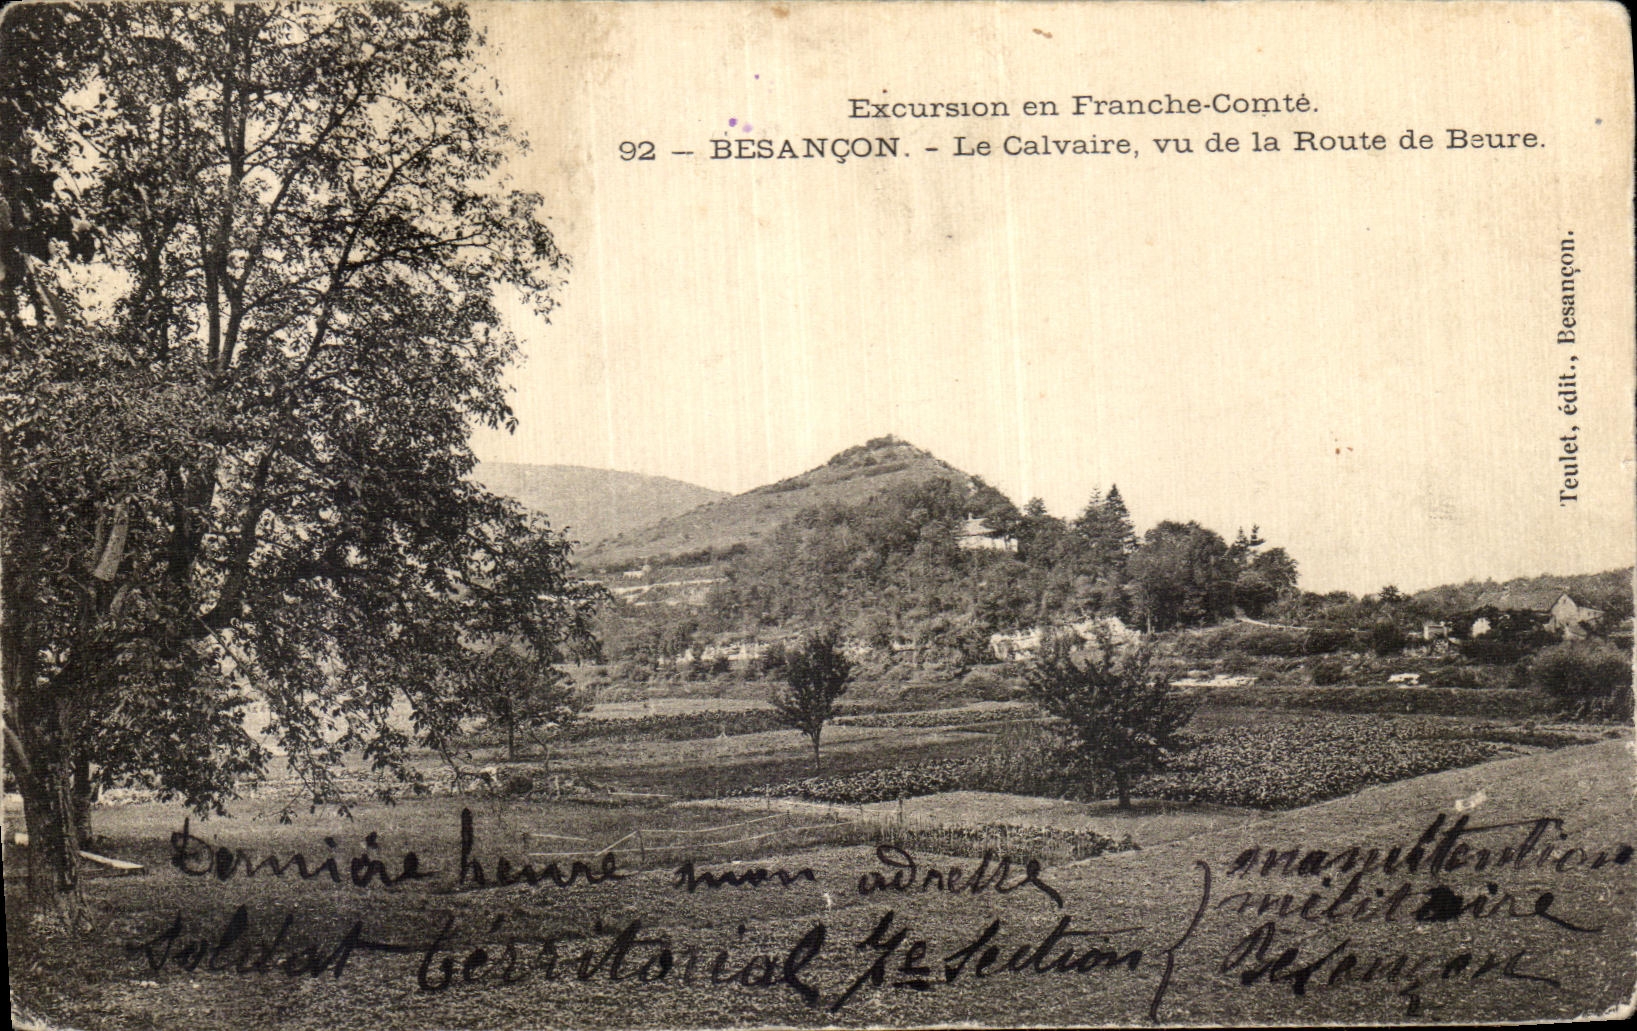 Excursion en Franche-Comté.
92 — BESANÇON. - Le Calvaire, vu de la Route de Beure.
Teulet, édit., Besançon.
Dernière heure mon adresse
Soldat térritorial 7e Section
militaire
Besançon